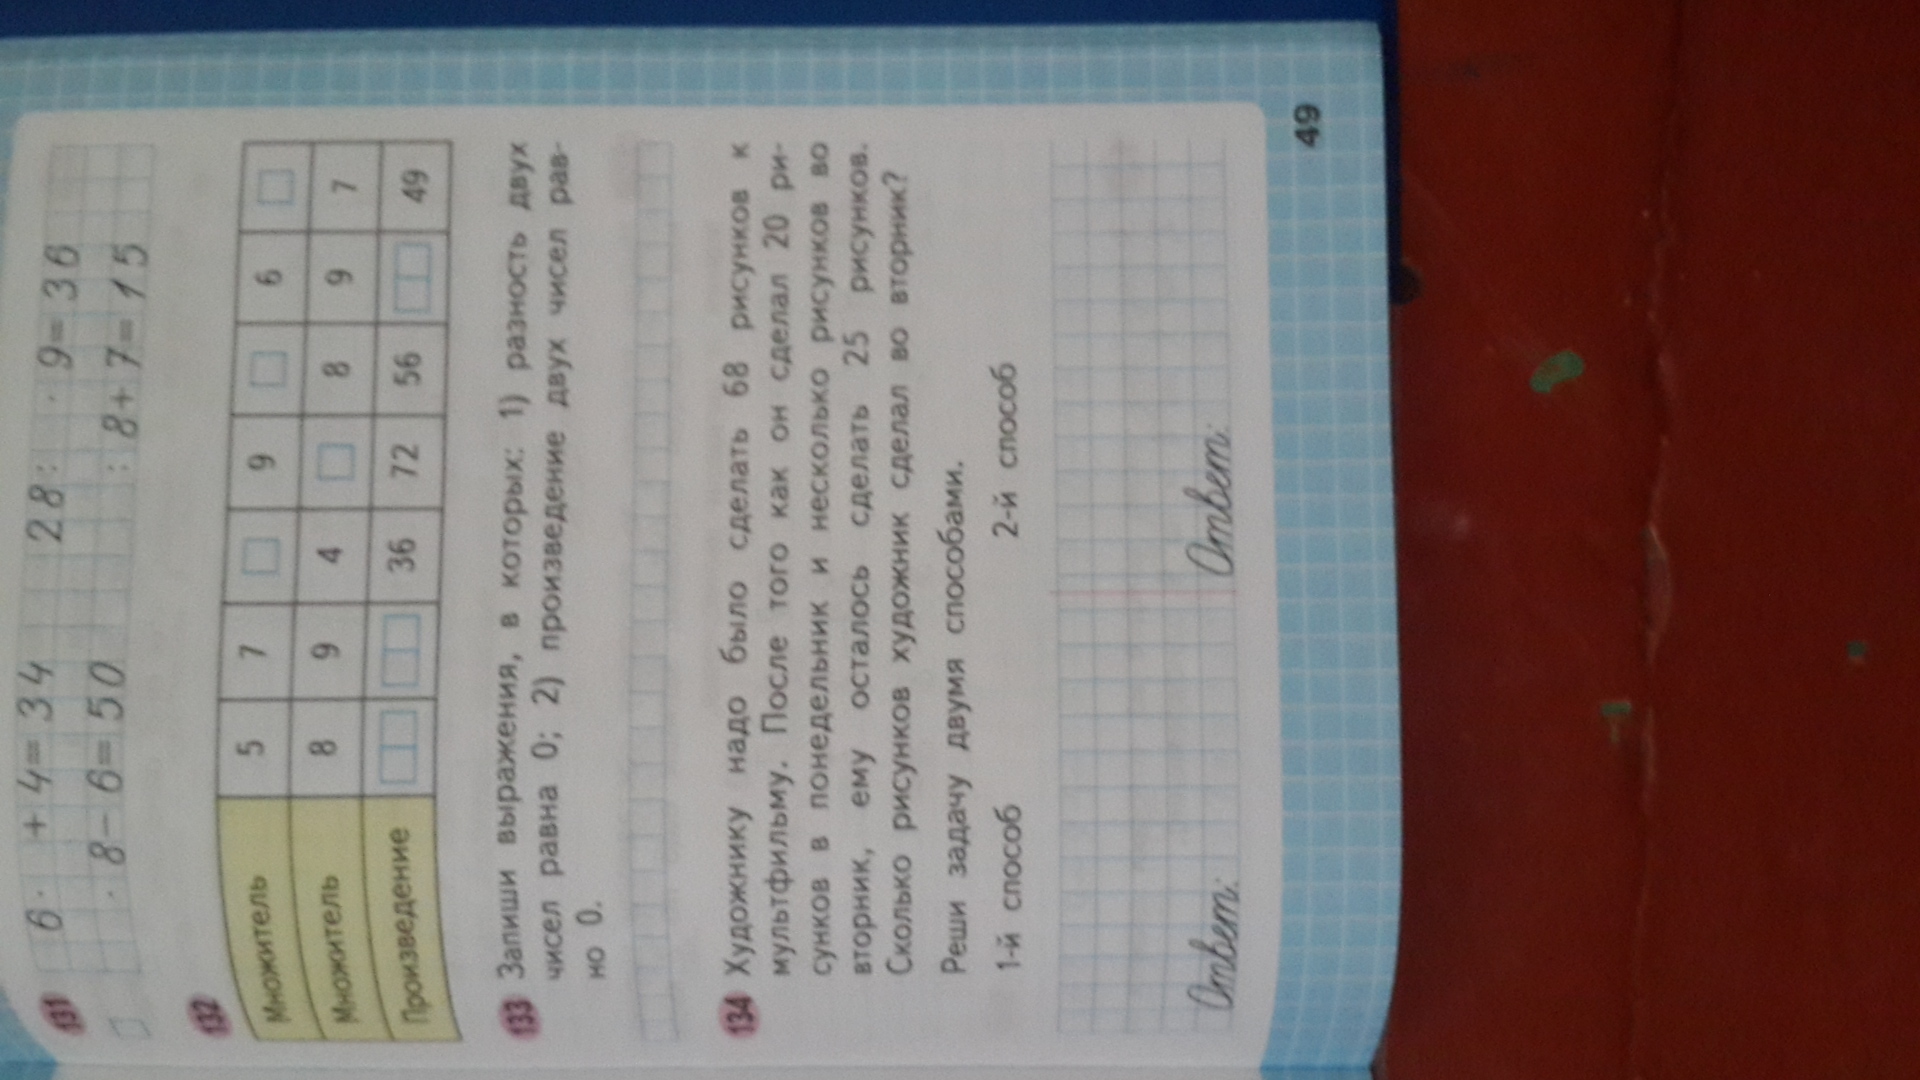 131 6 · + 4 = 34 28 : · 9 = 36
· 8 - 6 = 50 : 8 + 7 = 15
132
Множитель 5 7 9 6
Множитель 8 9 4 8 9 7
Произведение 36 72 56 49
133 Запиши выражения, в которых: 1) разность двух
чисел равна 0; 2) произведение двух чисел рав-
но 0.
134 Художнику надо было сделать 68 рисунков к
мультфильму. После того как он сделал 20 ри-
сунков в понедельник и несколько рисунков во
вторник, ему осталось сделать 25 рисунков.
Сколько рисунков художник сделал во вторник?
Реши задачу двумя способами.
1-й способ 2-й способ
Ответ: Ответ:
49